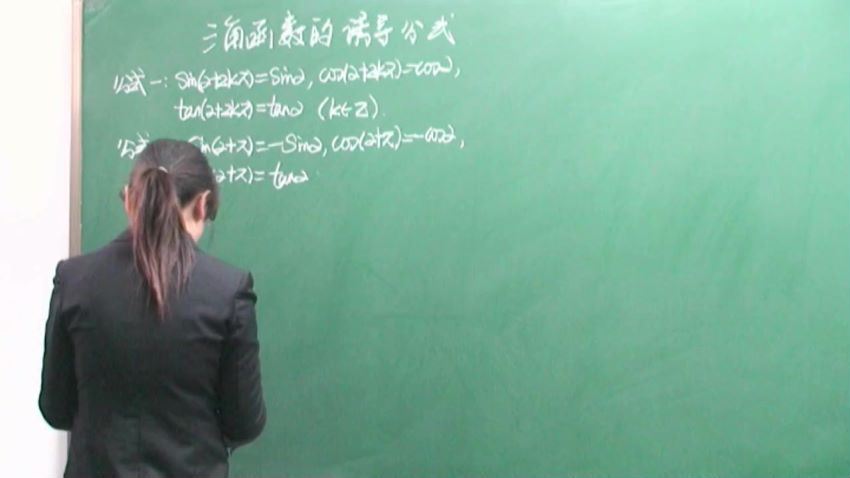 三角函数的诱导公式
公式一: sin(α+2kπ)=sinα, cos(α+2kπ)=cosα,
tan(α+2kπ)=tanα (k∈Z).
公式 sin(α+π)=-sinα, cos(α+π)=-cosα,
α+π)=tanα